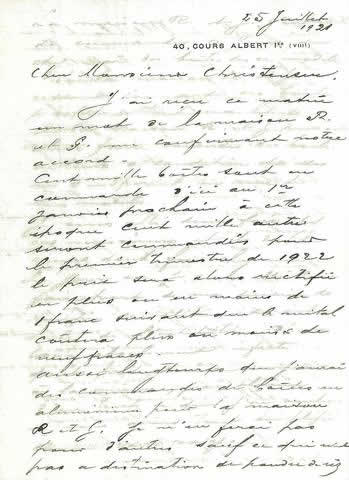 25 Juillet
1921
40, COURS ALBERT Ier (VIIIe)
Cher Monsieur Christensen.
J'ai reçu ce matin
un mot de la maison R
et G. me confirmant notre
accord.
Cent mille boîtes sont en
commande d'ici au 1er
Janvier prochain à cette
époque Cent mille autres
seront commandés pour
le premier trimestre de 1922
le prix sera alors rectifié
en plus ou en moins de
1 franc suivant que le métal
coutera plus ou moins de
neuf francs.
aussi longtemps que j'aurai
des commandes de boîtes en
aluminium pour la maison
R et G. Je n'en ferai pas
pour d'autres sauf ce qui
pas a destination de poudre de riz